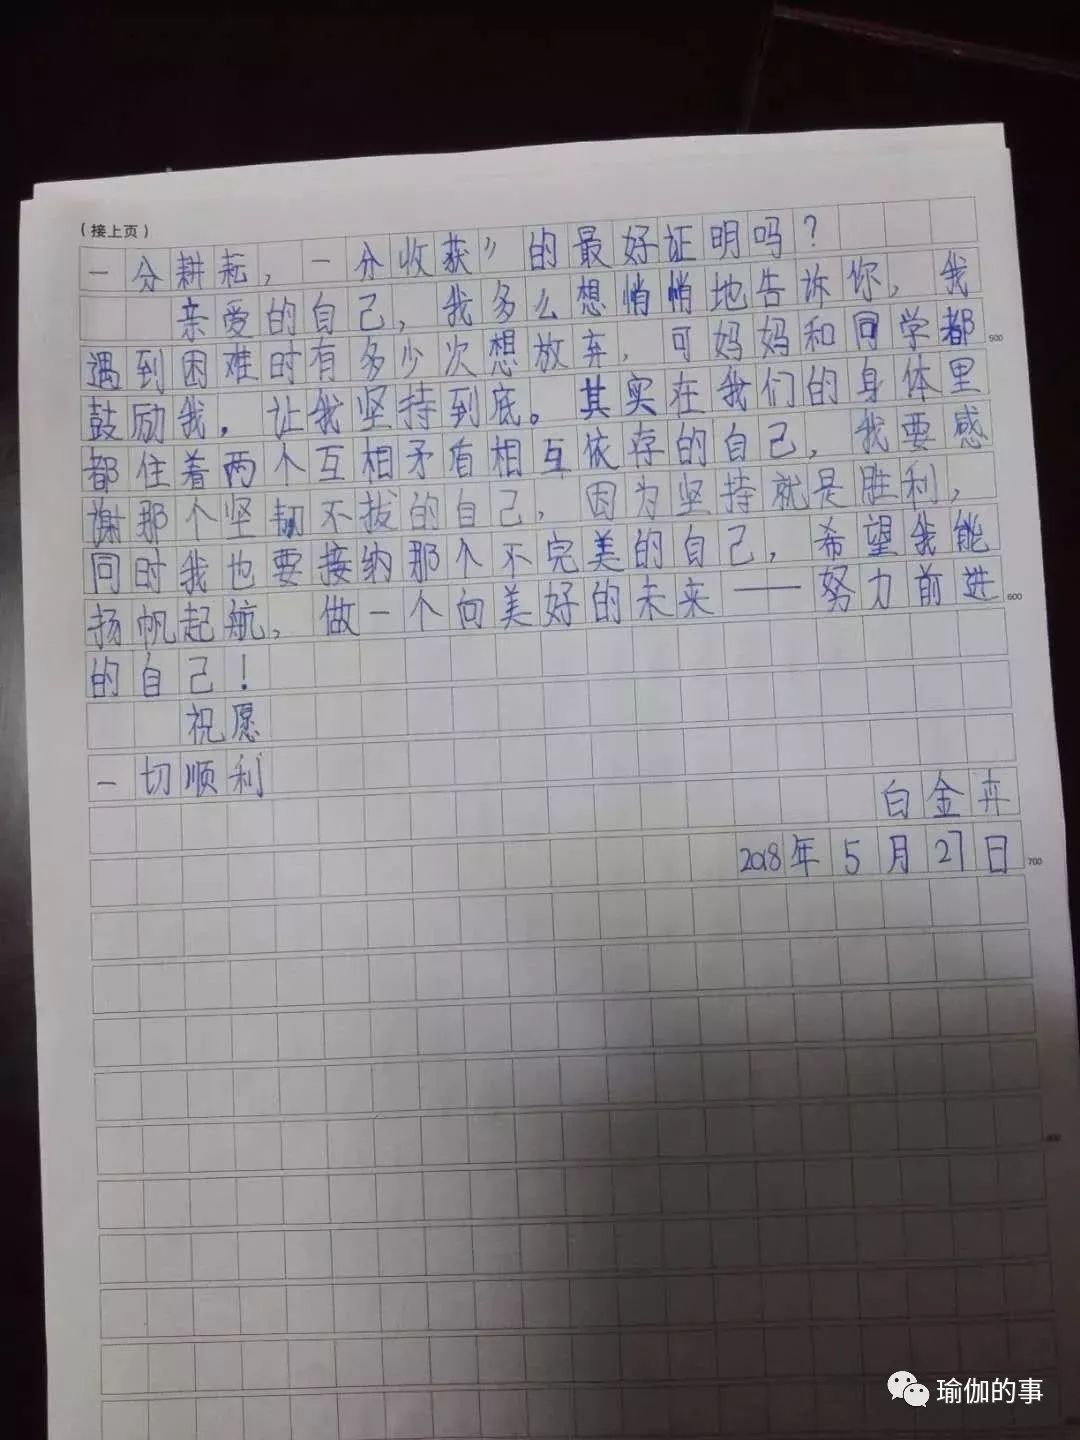 （接上页）
一分耕耘，一分收获”的最好证明吗？
亲爱的自己，我多么想悄悄地告诉你，我
遇到困难时有多少次想放弃，可妈妈和同学都
500
鼓励我，让我坚持到底。其实在我们的身体里
都住着两个互相矛盾相互依存的自己，我要感
谢那个坚韧不拔的自己，因为坚持就是胜利，
同时我也要接纳那个不完美的自己，希望我能
扬帆起航，做一个向美好的未来——努力前进
600
的自己！
祝愿
一切顺利
白金卉
2018年5月27日
700
800
瑜伽的事